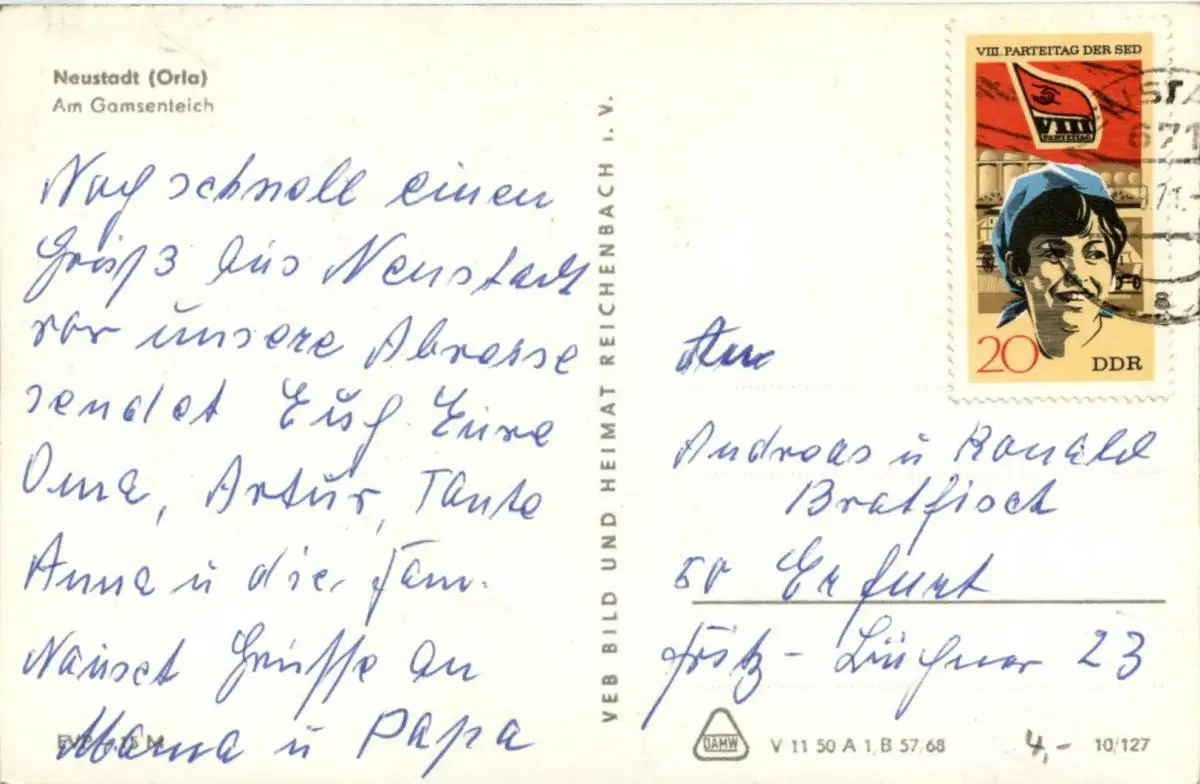 Neustadt (Orla)
Am Gamsenteich
Noch schnell einen
Gruß aus Neustadt
vor unsere Abreise
sendet Euch Eure
Oma, Artur, Tante
Anna u die Fam.
Grüsse an
Mama u Papa
EVP
VEB BILD UND HEIMAT REICHENBACH i. V.
VIII. PARTEITAG DER SED
VIII
PARTEITAG
20
DDR
671
Andreas u Ronald
Bratfisch
50 Erfurt
Fritz-
23
DAMW
V 11 50 A 1, B 57/68
4,-
10/127